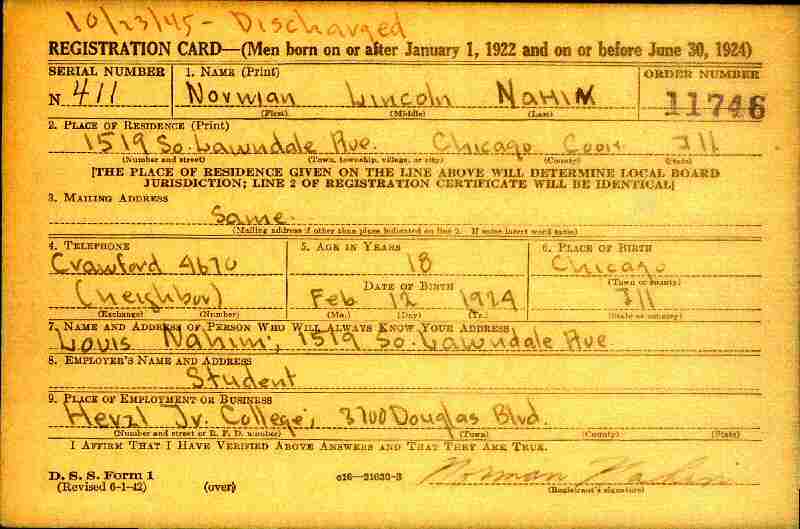 10/23/45 - Discharged
REGISTRATION CARD—(Men born on or after January 1, 1922 and on or before June 30, 1924)
SERIAL NUMBER 1. NAME (Print) ORDER NUMBER
N 411 Norman Lincoln Nahin 11746
(First) (Middle) (Last)
2. PLACE OF RESIDENCE (Print)
1519 So. Lawndale Ave. Chicago Cook Ill
(Number and street) (Town, township, village, or city) (County) (State)
[THE PLACE OF RESIDENCE GIVEN ON THE LINE ABOVE WILL DETERMINE LOCAL BOARD
JURISDICTION; LINE 2 OF REGISTRATION CERTIFICATE WILL BE IDENTICAL]
3. MAILING ADDRESS
Same
(Mailing address if other than place indicated on line 2. If same insert word same)
4. TELEPHONE 5. AGE IN YEARS 6. PLACE OF BIRTH
Crawford 4670 18 Chicago
DATE OF BIRTH (Town or county)
(Neighbor) Feb 12 1924 Ill
(Exchange) (Number) (Mo.) (Day) (Yr.) (State or country)
7. NAME AND ADDRESS OF PERSON WHO WILL ALWAYS KNOW YOUR ADDRESS
Louis Nahin, 1519 So. Lawndale Ave
8. EMPLOYER'S NAME AND ADDRESS
Student
9. PLACE OF EMPLOYMENT OR BUSINESS
Herzl Jr. College, 3700 Douglas Blvd.
(Number and street or R. F. D. number) (Town) (County) (State)
I AFFIRM THAT I HAVE VERIFIED ABOVE ANSWERS AND THAT THEY ARE TRUE.
D. S. S. Form 1 c16—21630-2 Norman Nahin
(Revised 6-1-42) (over) (Registrant's signature)